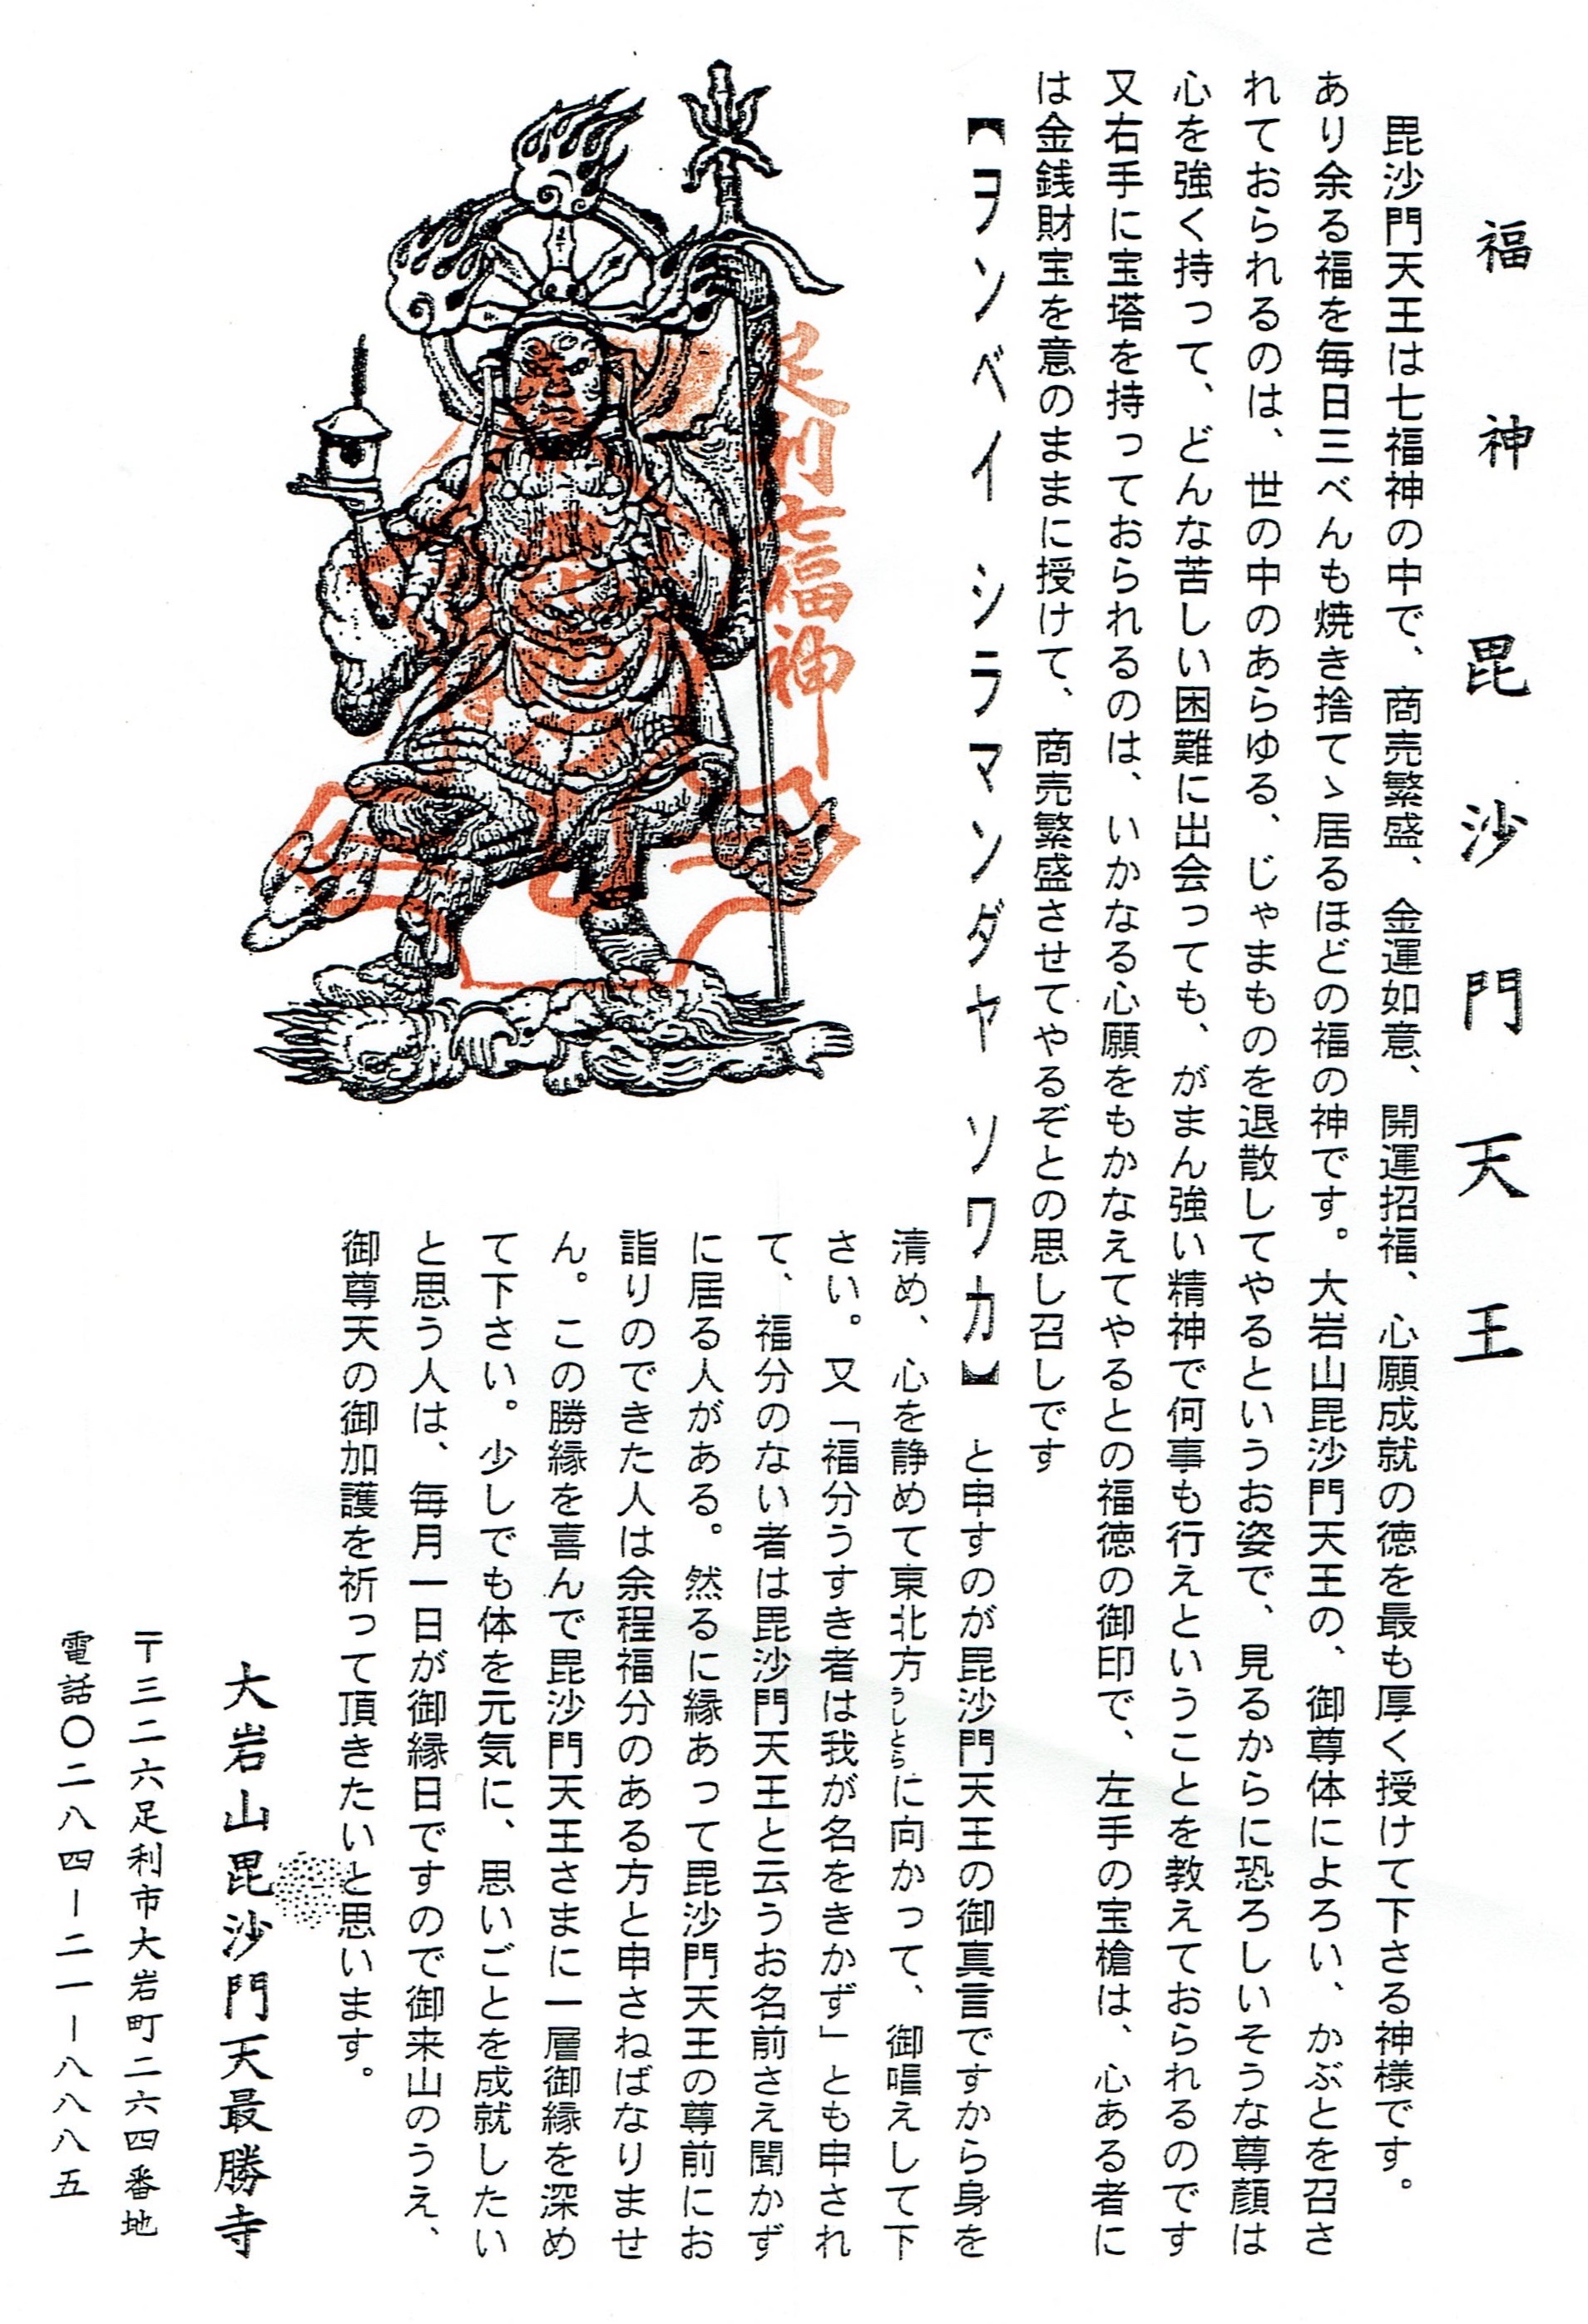 福神毘沙門天王
毘沙門天王は七福神の中で、商売繁盛、金運如意、開運招福、心願成就の徳を最も厚く授けて下さる神様です。
あり余る福を毎日三べんも焼き捨てゝ居るほどの福の神です。大岩山毘沙門天王の、御尊体によろい、かぶとを召さ
れておられるのは、世の中のあらゆる、じゃまものを退散してやるというお姿で、見るからに恐ろしいそうな尊顔は
心を強く持って、どんな苦しい困難に出会っても、がまん強い精神で何事も行えということを教えておられるのです
又右手に宝塔を持っておられるのは、いかなる心願をもかなえてやるとの福徳の御印で、左手の宝槍は、心ある者に
は金銭財宝を意のままに授けて、商売繁盛させてやるぞとの思し召しです
【ヲンベイシラマンダヤソワカ】と申すのが毘沙門天王の御真言ですから身を
清め、心を静めて東北方うしとらに向かって、御唱えして下
さい。又「福分うすき者は我が名をきかず」とも申され
て、福分のない者は毘沙門天王と云うお名前さえ聞かず
に居る人がある。然るに縁あって毘沙門天王の尊前にお
詣りのできた人は余程福分のある方と申さねばなりませ
ん。この勝縁を喜んで毘沙門天王さまに一層御縁を深め
て下さい。少しでも体を元気に、思いごとを成就したい
と思う人は、毎月一日が御縁日ですので御来山のうえ、
御尊天の御加護を祈って頂きたいと思います。
足利七福神
大岩山毘沙門天最勝寺
〒三二六足利市大岩町二六四番地
電話〇二八四ー二一ー八八八五